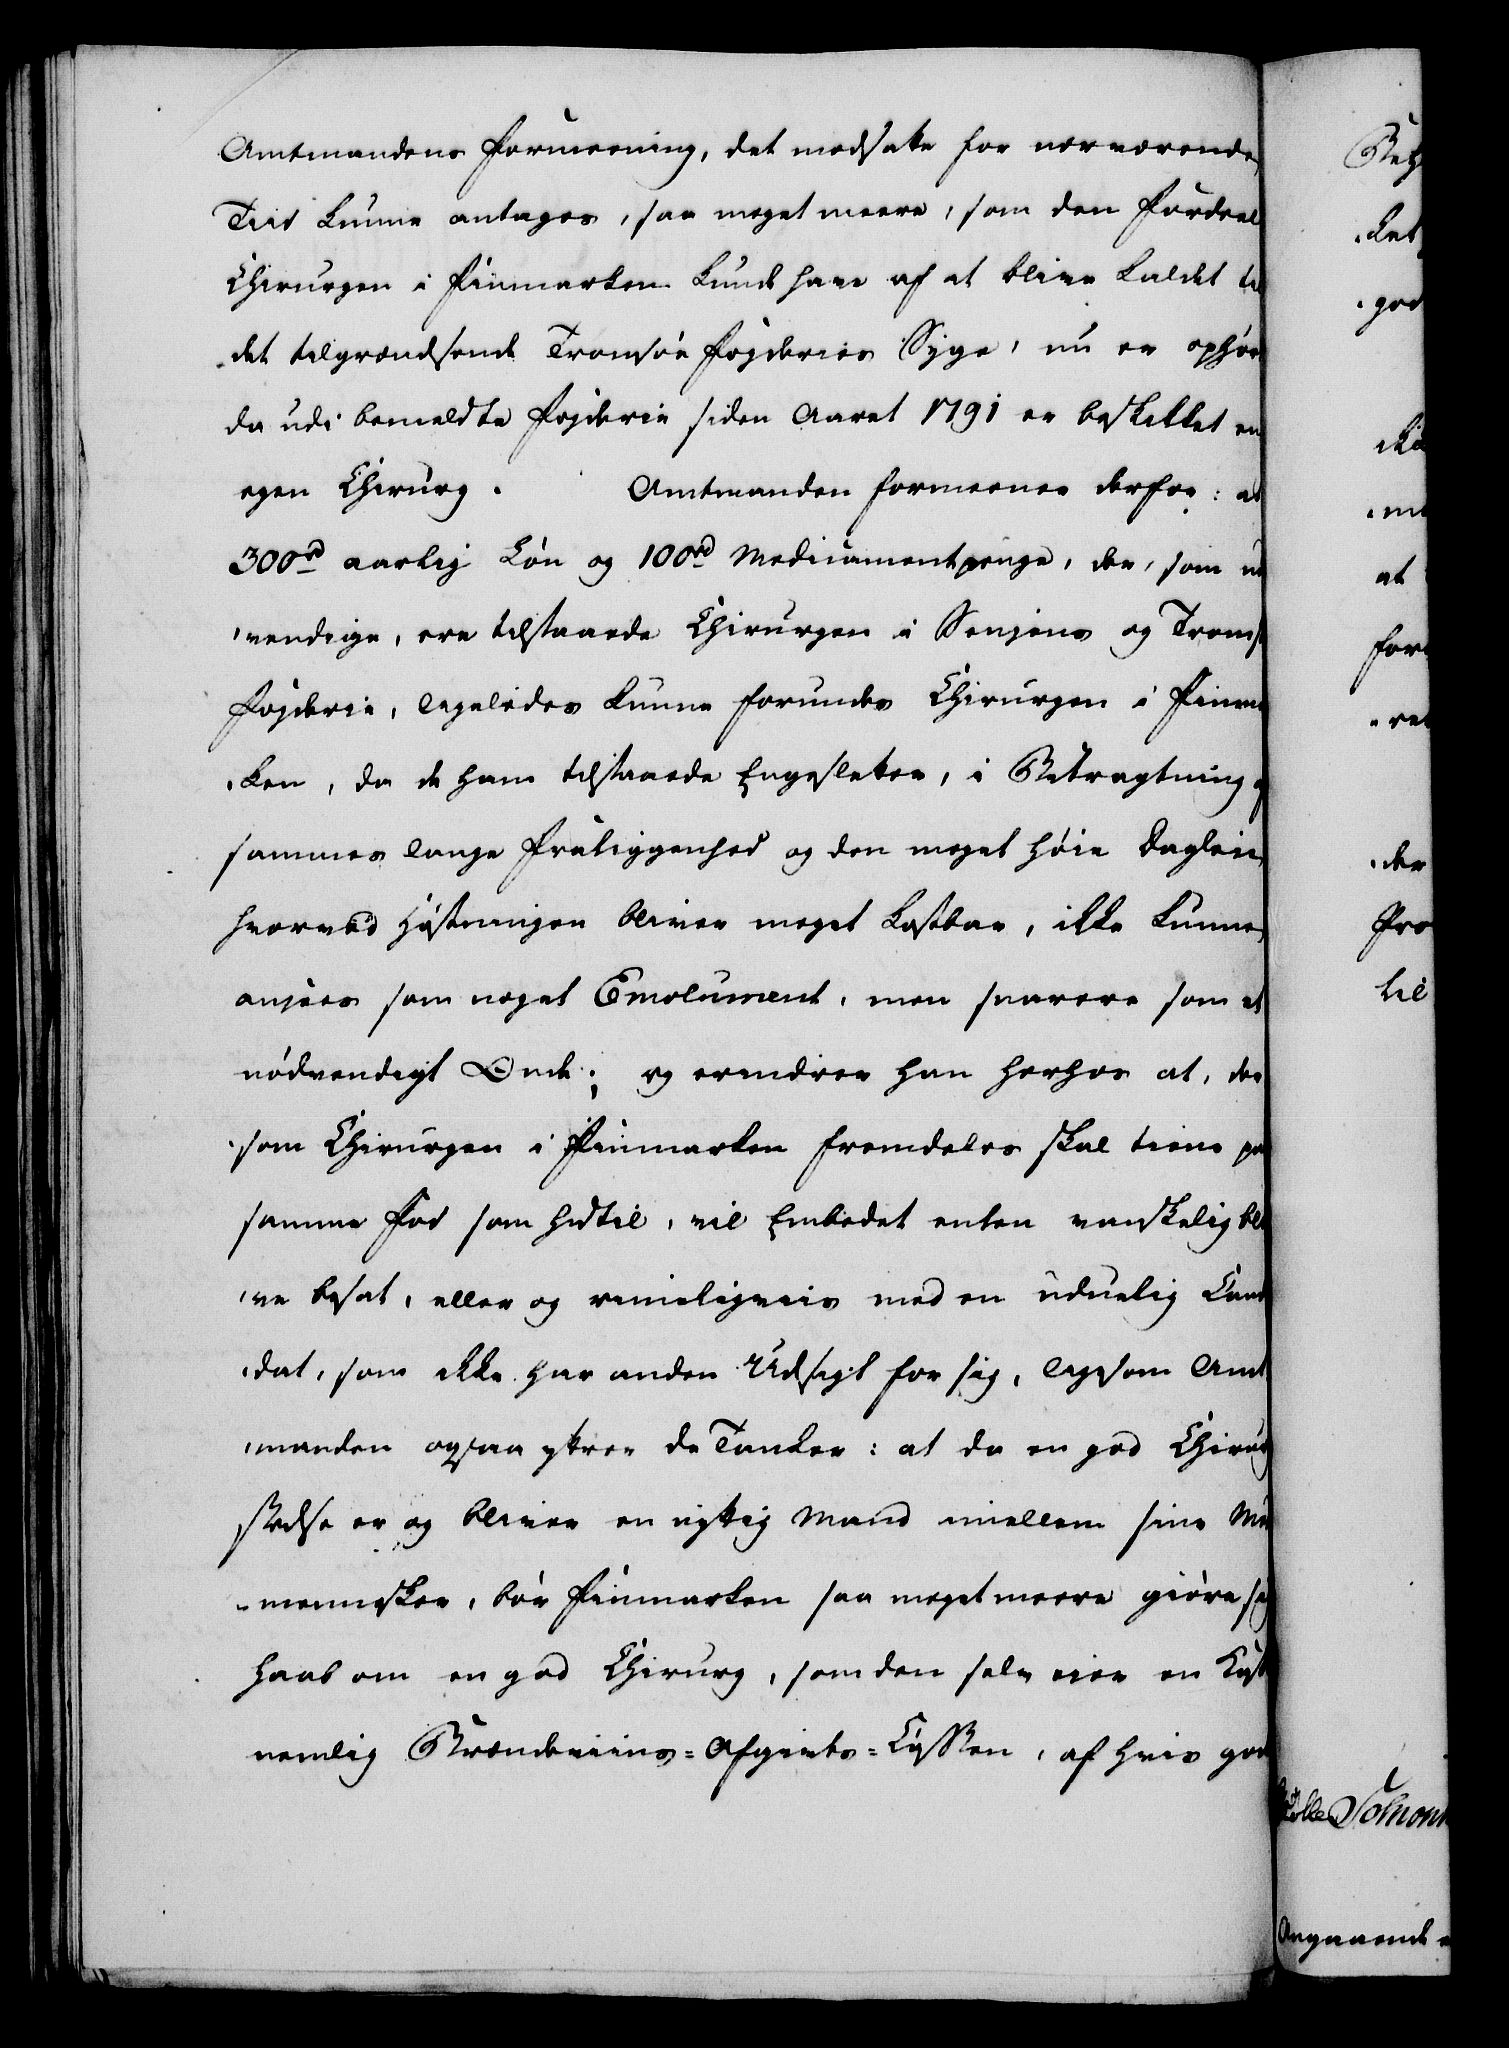 Amtmandens Formeening, det modsatte for nærværende
Tiid kunne antages, saa meget meere, som den Fordeel
Chirurgen i Finmarken kunde have af at blive kaldet til
det tilgrændsende Tromsøe Fogderies Syge, nu er ophør
da udi bemeldte Fogderie siden Aaret 1791 er beskikket en
egen Chirurg. Amtmanden formeener derfor: at
300rd aarlig Løn og 100rd Medicamentpenge, der, som
vendige, ere tilstaaede Chirurgen i Senjens og Troms
Fogderie, ligeledes kunne forundes Chirurgen i Finmar
ken, da de ham tilstaaede Engesletter, i Betragtning af
sammes lange Fraliggenhed og den meget høie Dagløn
hvorved Høstningen bliver meget kostbar, ikke kunne
ansees som noget Emolument, men snarere som et
nødvendigt Onde; og erindrer han herhos at, der
som Chirurgen i Finmarken fremdeles skal tiene paa
samme Fod som hidtil, vil Embedet enten vanskelig bli
ve besat, eller og rimeligviis med en uduelig Candi
dat, som ikke har anden Udsigt for sig, ligesom Amt
manden ogsaa yttrer de Tanker: at da en god Chirurg
stedse er og bliver en vigtig Mand imellem sine Med
mennesker, bør Finmarken saa meget meere giøre sig
Haab om en god Chirurg, som den selv eier en Kasse
nemlig Brændeviins=Afgivts=Cassen, af hvis god
Bet
ket
god
at
der
Pro
til
Angaaende